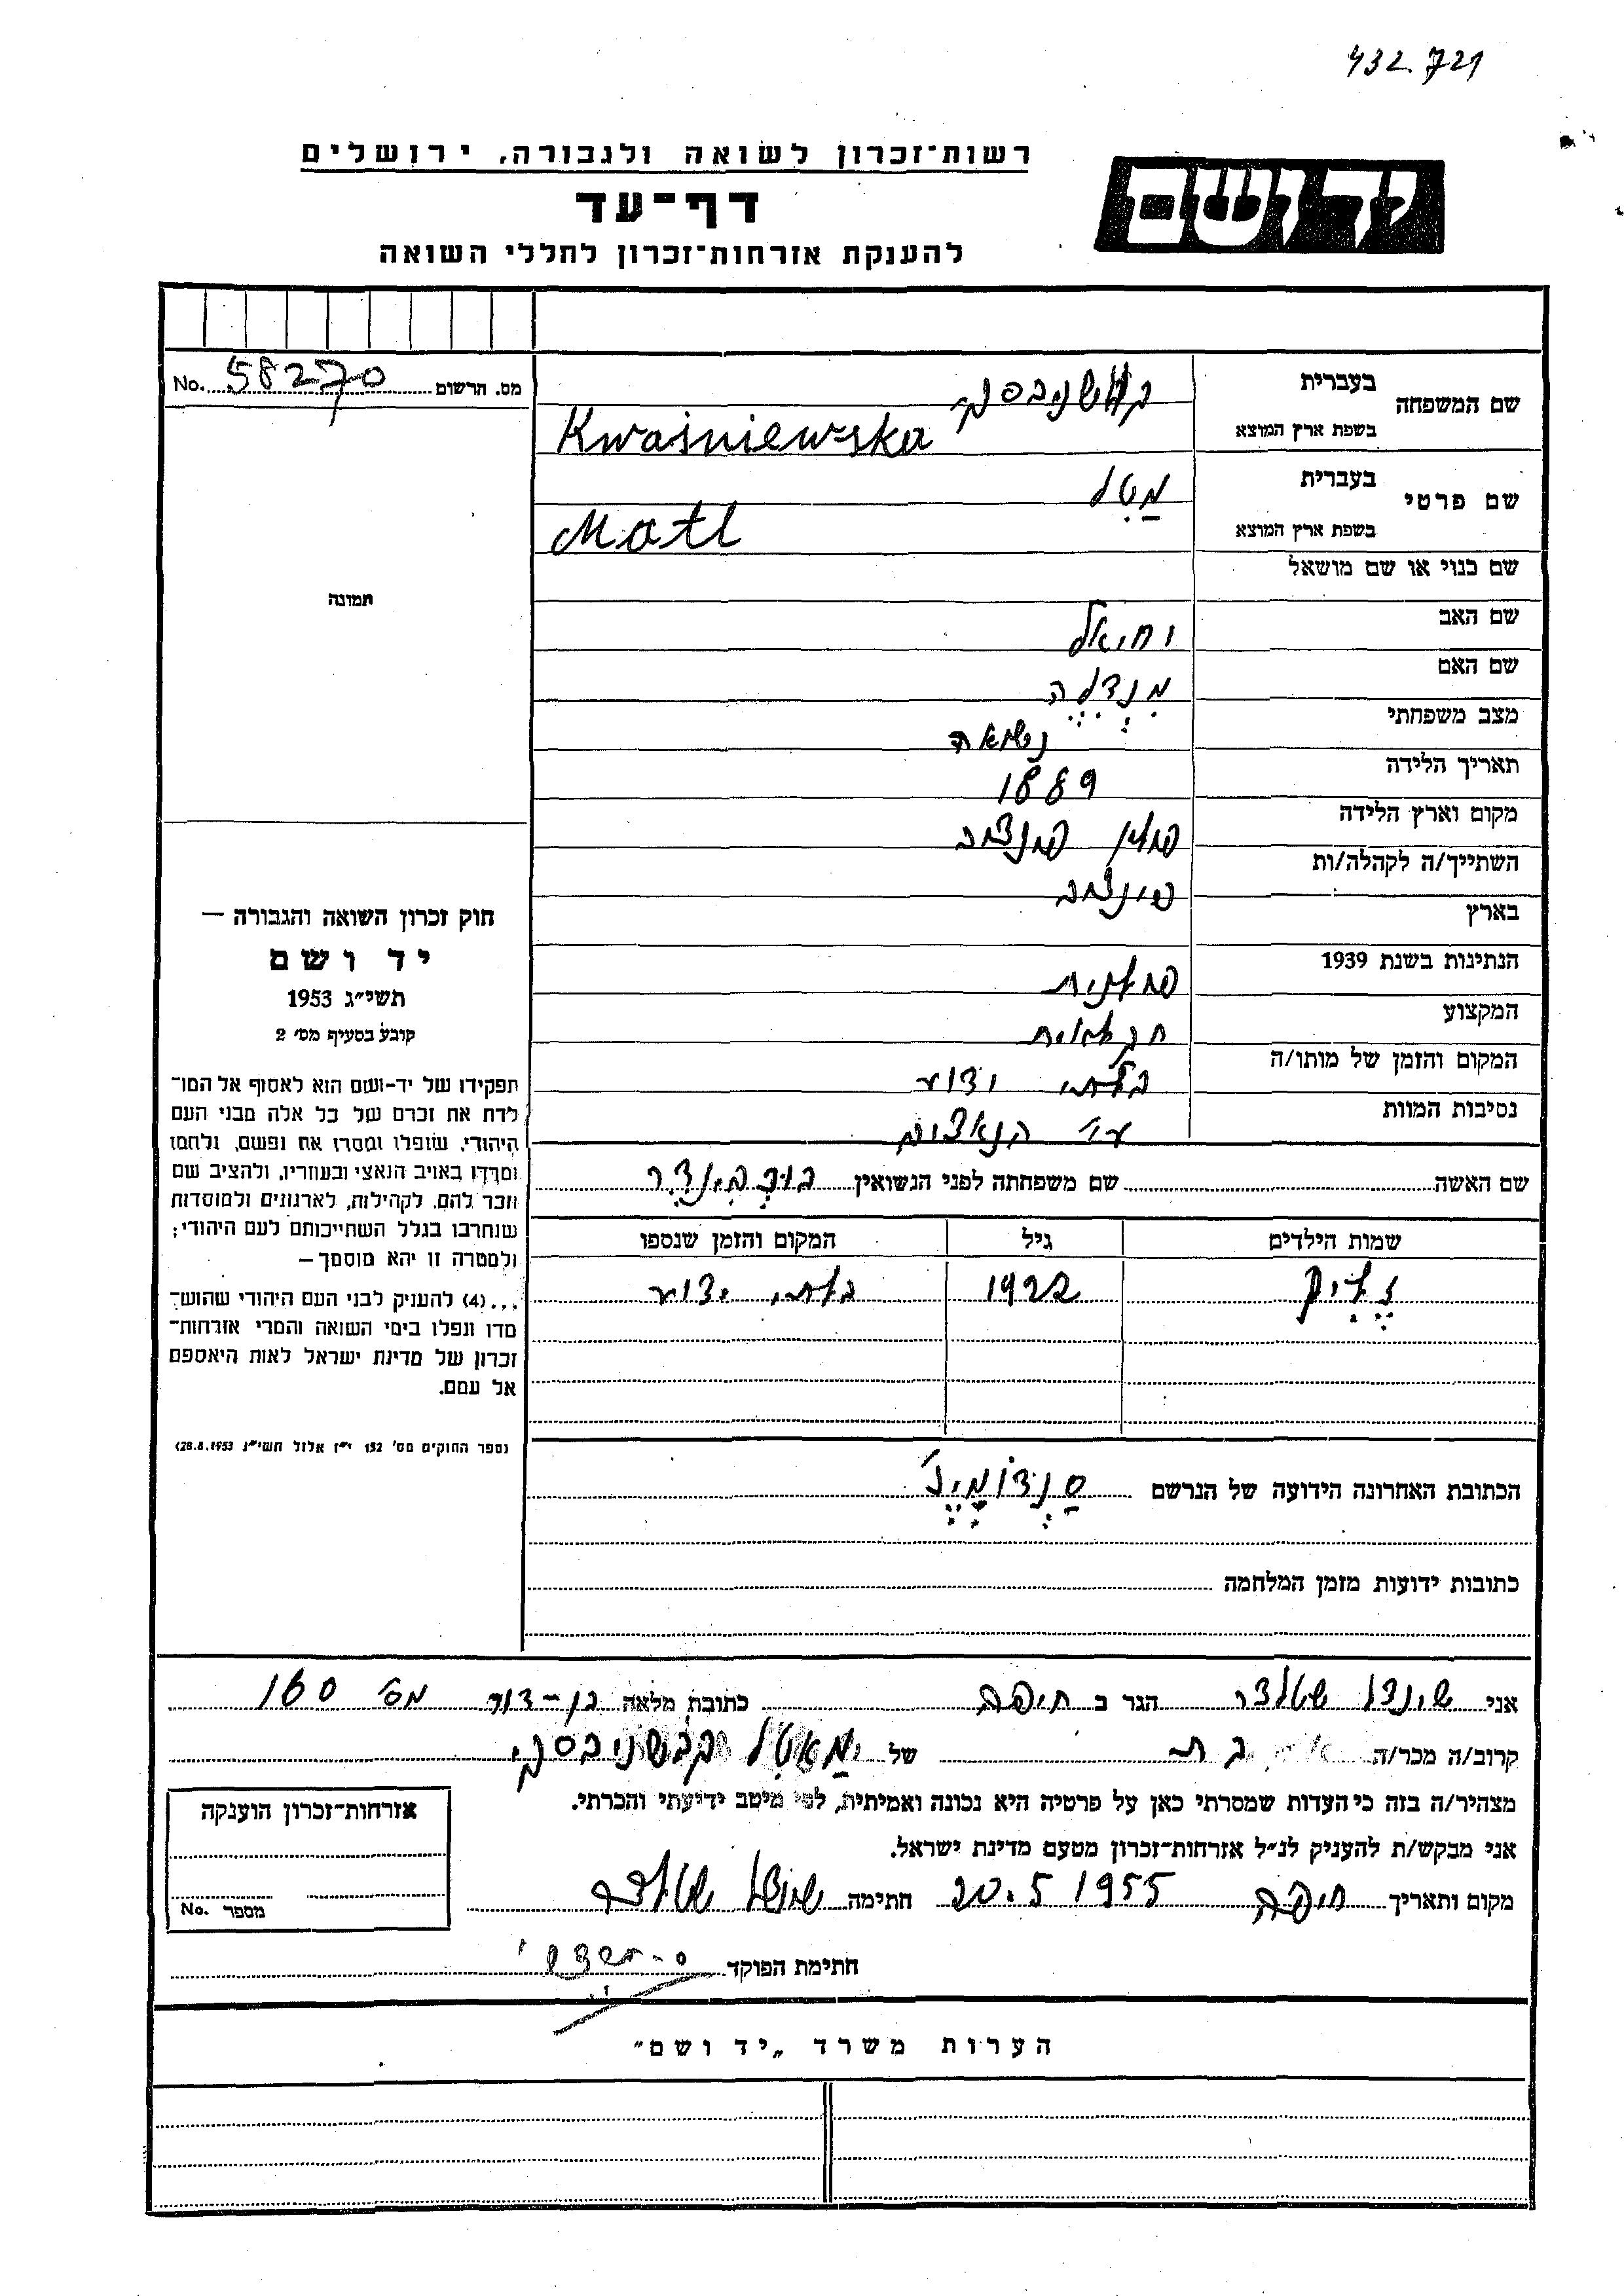 432.721
רשות־זכרון לשואה ולגבורה, ירושלים
יד ושם
דף־עד
להענקת אזרחות־זכרון לחללי השואה
מס. הרשום 58270 No.
שם המשפחה
בעברית
בשפת ארץ המוצא Kwaśniewska
שם פרטי
בעברית מַטִל
בשפת ארץ המוצא Matl
שם כנוי או שם מושאל
תמונה
שם האב יחיאל
שם האם
מצב משפחתי נשואה
תאריך הלידה 1889
מקום וארץ הלידה
השתייך/ה לקהלה/ות
בארץ
הנתינות בשנת 1939
המקצוע
המקום והזמן של מותו/ה בלתי ידוע
נסיבות המוות ע"י הנאצים
שם האשה שם משפחתה לפני הנשואין
שמות הילדים גיל המקום והזמן שנספו
1922 בלתי ידוע
הכתובת האחרונה הידועה של הנרשם
כתובות ידועות מזמן המלחמה
חוק זכרון השואה והגבורה —
יד ושם
תשי״ג 1953
קובע בסעיף מס׳ 2
תפקידו של יד-ושם הוא לאסוף אל המו־
לדת את זכרם של כל אלה מבני העם
היהודי, שנפלו ומסרו את נפשם, נלחמו
ומרדו באויב הנאצי ובעוזריו, ולהציב שם
וזכר להם, לקהילות, לארגונים ולמוסדות
שנחרבו בגלל השתייכותם לעם היהודי;
ולמטרה זו יהא מוסמך —
...(4) להענק לבני העם היהודי שהוש־
מדו ונפלו בימי השואה והמרי אזרחות־
זכרון של מדינת ישראל לאות היאספם
אל עמם.
(ספר החוקים מס׳ 132 י״ז אלול תשי״ג 28.8.1953)
אני הגר ב חיפה כתובת מלאה מס' 160
קרוב/ה מכר/ה בת של
מצהיר/ה בזה כי העדות שמסרתי כאן על פרטיה היא נכונה ואמיתית, לפי מיטב ידיעתי והכרתי.
אני מבקש/ת להעניק לנ״ל אזרחות־זכרון מטעם מדינת ישראל.
מקום ותאריך חיפה 20.5 1955 חתימה
חתימת הפוקד
אזרחות־זכרון הוענקה
מספר No.
הערות משרד „יד ושם״